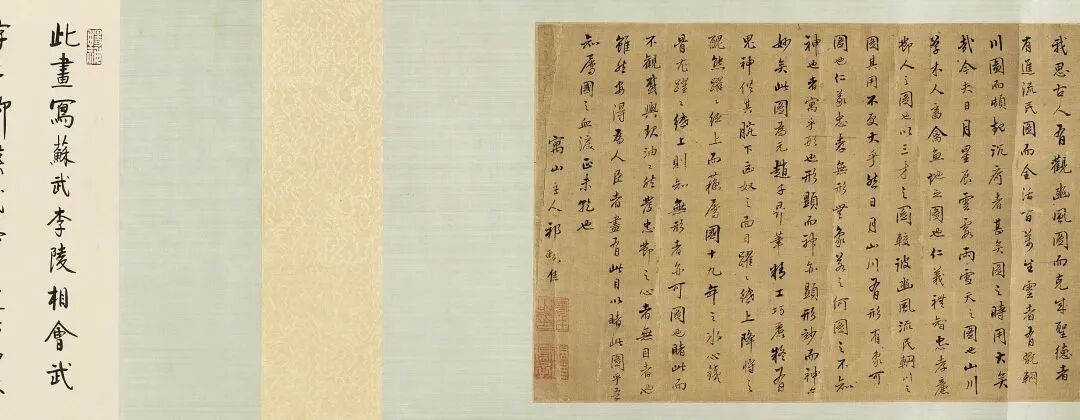 我思古人有觀豳風圖而克成聖德者
有進流民圖而全活百萬生靈者有覩輞
川圖而頓起沉疴者甚矣圖之時用大矣
哉今夫日月星辰雲霧雨雪天之圖也山川
草木人畜禽魚地之圖也仁義禮智忠孝廉
節人之圖也以三才之圖較彼豳風流民輞川之
圖其用不更大乎然日月山川有形有象可
圖也仁義忠孝無形無象若之何圖之不知
神也者寓乎形也形顯而神亦顯形妙而神亦
妙矣此圖為元趙子昂筆精工巧麗殆有
鬼神供其腕下匈奴之面目躍〻紙上降將之
醜態躍〻紙上而蘓屬國十九年之冰心鐵
骨尤躍〻紙上則知無形者亦可圖也睹此而
不觀感興起油〻然發忠節之心者無目者也
雖然安得為人臣者盡有此目以睹此圖乎吾
知屬國之血淚正未乾也
寓山主人祁豸佳
此畫寫蘇武李陵相會武